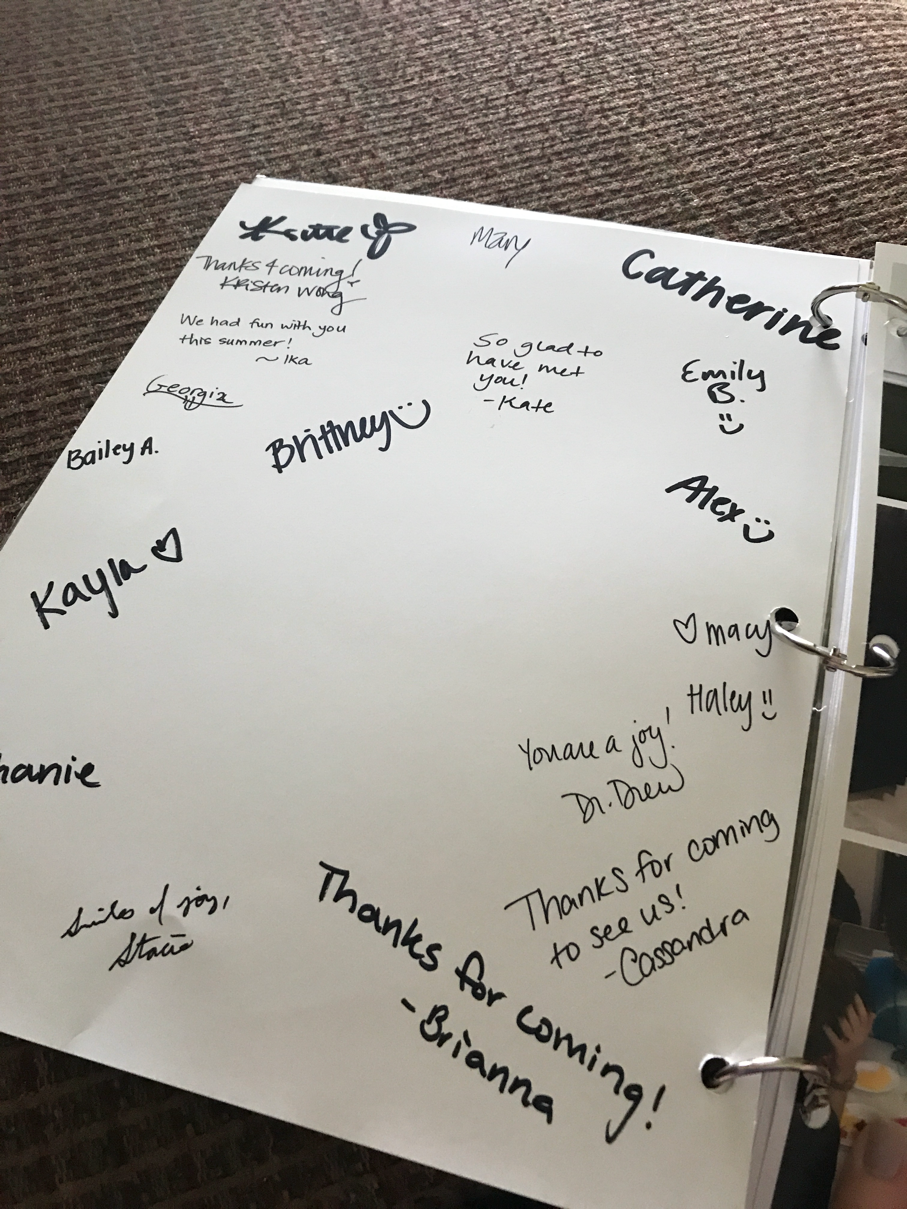 Katie
Mary
Catherine
Thanks 4 coming!
Kristen Wong
We had fun with you
this summer!
~ Ika
So glad to
have met
you!
-Kate
Emily
B.
Georgia
Brittney
Bailey A.
Alex
Kayla
macy
Haley
You are a joy!
Dr. Drew
hanie
Thanks for coming
to see us!
-Cassandra
Smiles of joy,
Stacia
Thanks for coming!
-Brianna